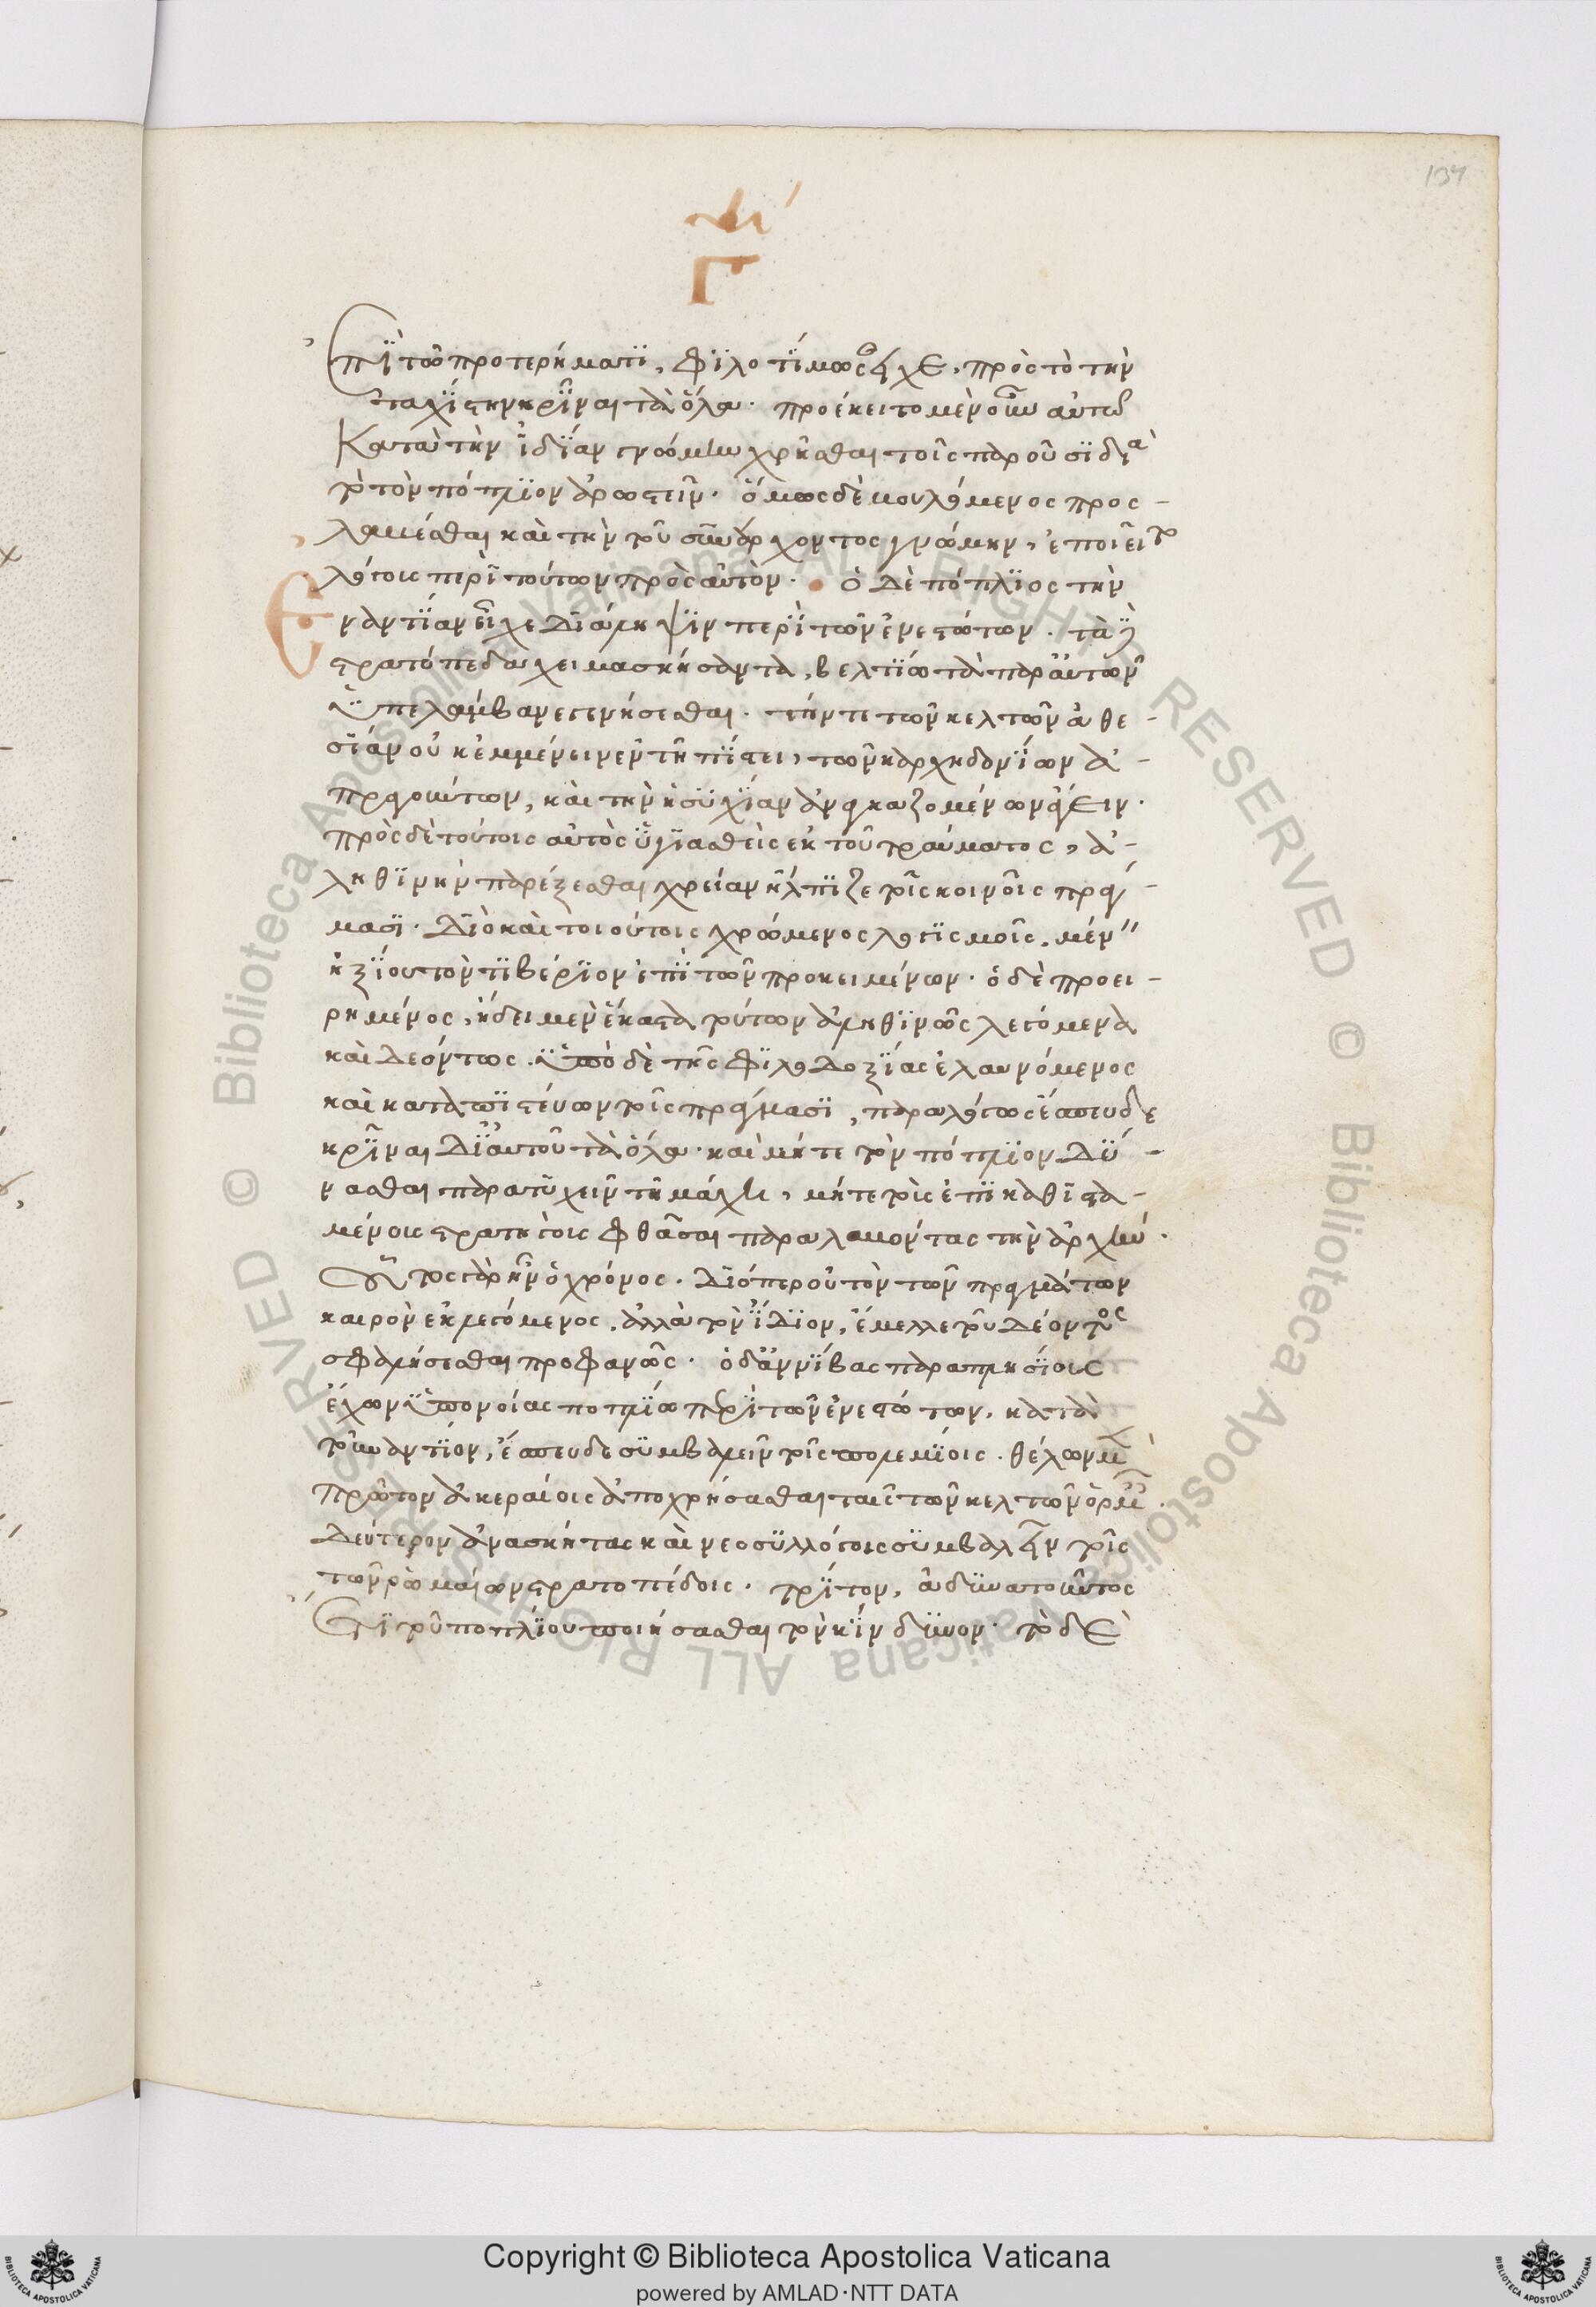 137
Γ
ἐπὶ τῶ προτερήματι, φιλοτίμως εἶχε, πρὸς τὸ τὴν
ταχίστην κρῖναι τὰ ὅλα. προέκειτο μὲν οὖν αὐτῶ
κατὰ τὴν ἰδίαν γνώμην χρῆσθαι τοῖς παροῦσι διὰ
τὸ τὸν πόπλιον ἀρρωστεῖν. ὅμως δὲ βουλόμενος προσ-
λαβέσθαι καὶ τὴν τοῦ συνάρχοντος γνώμην, ἐποιεῖτο
λόγους περὶ τούτων πρὸς αὐτόν. ὁ δὲ πόπλιος τὴν
ἐναντίαν εἶχε διάληψιν περὶ τῶν ἐνεστώτων. τὰ γ(ὰρ)
στρατόπεδα χειμασκήσαντα, βελτίω τὰ παρ' αὐτῶν
ὑπελάμβανε γενήσεσθαι. τήν τε τῶν κελτῶν ἀθε-
σίαν οὐκ ἐμμένειν ἐν τῆ πίστει, τῶν καρχηδονίων ἀ-
πραγούντων, καὶ τὴν ἡσυχίαν ἀναγκαζομένων ἄγειν.
πρὸς δὲ τούτοις αὐτὸς ὑγιασθεὶς ἐκ τοῦ τραύματος, ἀ-
ληθινὴν παρέξεσθαι χρείαν ἤλπιζε τοῖς κοινοῖς πράγ-
μασι. διὸ καὶ τοιούτοις χρώμενος λογισμοῖς, μέν(ειν)
ἠξίου τὸν τιβέριον ἐπὶ τῶν προκειμένων. ὁ δὲ προει-
ρημένος, ἤδει μὲν ἕκαστα τούτων ἀληθινῶς λεγόμενα
καὶ δεόντως. ὑπὸ δὲ τῆς φιλοδοξίας ἐλαυνόμενος
καὶ καταπιστεύων τοῖς πράγμασι, παραλόγως ἔσπευδε
κρῖναι δι' αὑτοῦ τὰ ὅλα. καὶ μήτε τὸν πόπλιον δύ-
νασθαι παρατυχεῖν τῆ μάχη, μήτε τοῖς ἐπικαθιστα-
μένοις στρατηγοῖς φθᾶσαι παραλαβόντας τὴν ἀρχήν.
οὗτος γὰρ ἦν ὁ χρόνος. διόπερ οὐ τὸν τῶν πραγμάτων
καιρὸν ἐκλεγόμενος, ἀλλὰ τὸν ἴδιον, ἔμελλε τοῦ δέοντος
σφαλήσεσθαι προφανῶς. ὁ δ' ἀννίβας παραπλησίους
ἔχων ὑπονοίας ποπλίω περὶ τῶν ἐνεστώτων, κατὰ
τοὐναντίον, ἔσπευδε συμβαλεῖν τοῖς πολεμίοις. θέλων μὲν
πρῶτον ἀκεραίοις ἀποχρήσασθαι ταῖς τῶν κελτῶν ὁρμαῖς.
δεύτερον ἀνασκήτοις καὶ νεοσυλλόγοις συμβαλεῖν τοῖς
τῶν ρωμαίων στρατοπέδοις. τρίτον, ἀδυνατοῦντος
ἔτι τοῦ ποπλίου ποιήσασθαι τὸν κίνδυνον. τὸ δὲ
Copyright © Biblioteca Apostolica Vaticana
powered by AMLAD·NTT DATA